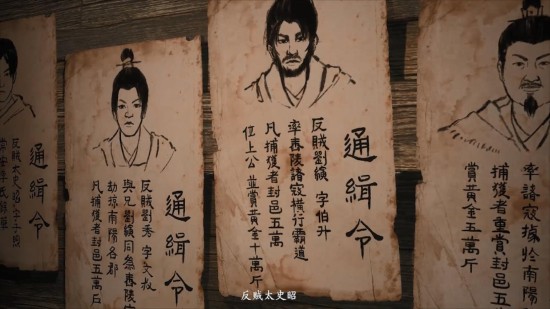 率諸寇據於南陽
捕獲者重賞封邑五
賞黃金五萬斤
通緝令
反賊劉縯 字伯升
率舂陵諸寇橫行霸道
凡捕獲者封邑五萬
位上公 並賞黃金十萬斤
通緝令
反賊劉秀 字文叔
與兄劉縯同為舂陵
劫掠南陽各郡
凡捕獲者封邑五萬戶
通緝令
反賊太史
反賊太史昭